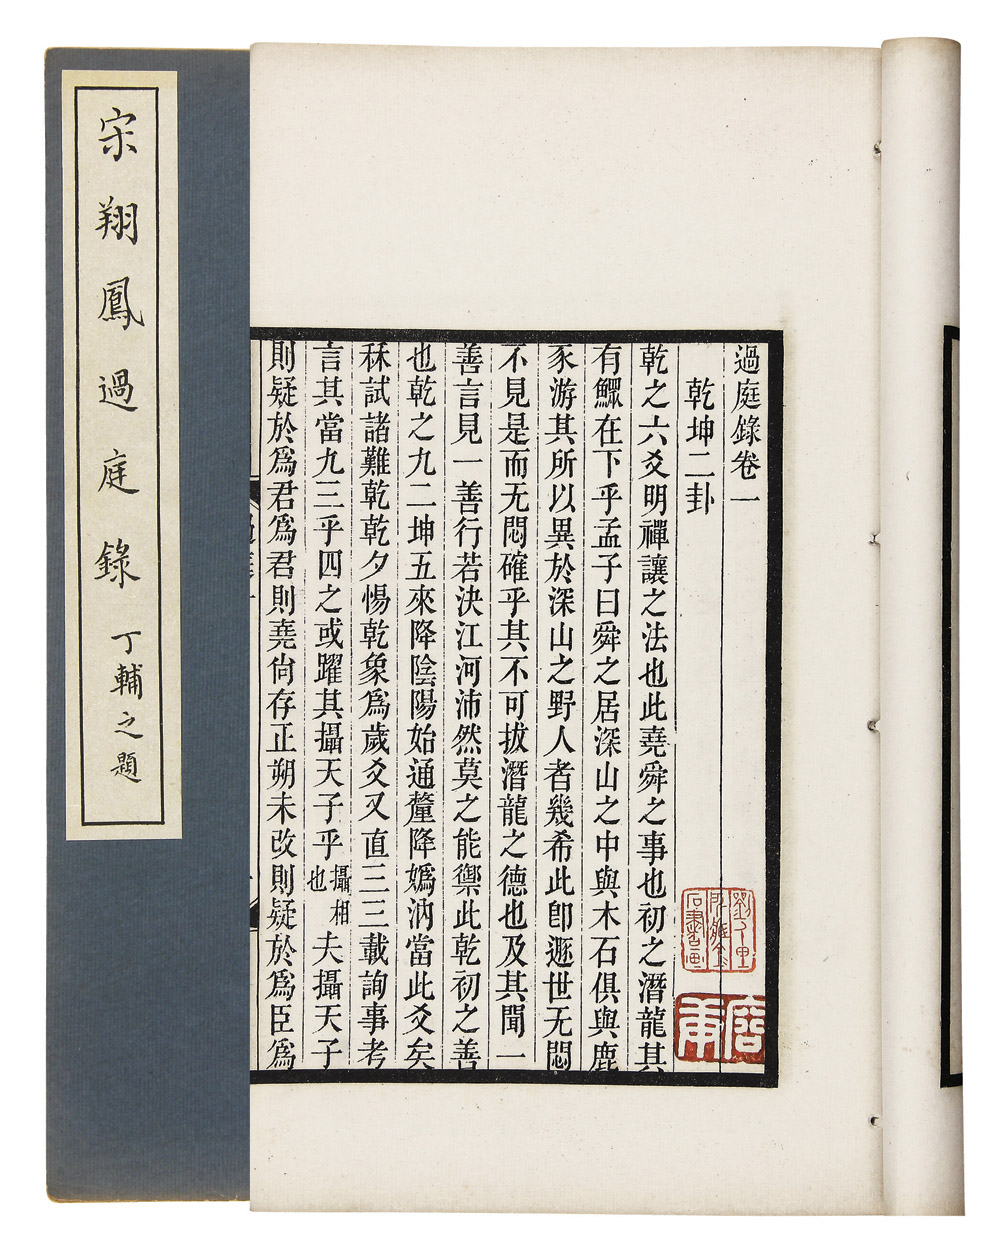 宋翔鳳過庭錄
丁輔之題
過庭錄卷一
乾坤二卦
乾之六爻明禪讓之法也此堯舜之事也初之潛龍其
有鰥在下乎孟子曰舜之居深山之中與木石俱與鹿
豕游其所以異於深山之野人者幾希此卽遯世无悶
不見是而无悶確乎其不可拔潛龍之德也及其聞一
善言見一善行若決江河沛然莫之能禦此乾初之善
也乾之九二坤五來降陰陽始通釐降嬀汭當此爻矣
秝試諸難乾乾夕惕乾象爲歲爻又直三三載詢事考
言其當九三乎四之或躍其攝天子乎攝相也夫攝天子
則疑於爲君爲君則堯尙存正朔未改則疑於爲臣爲